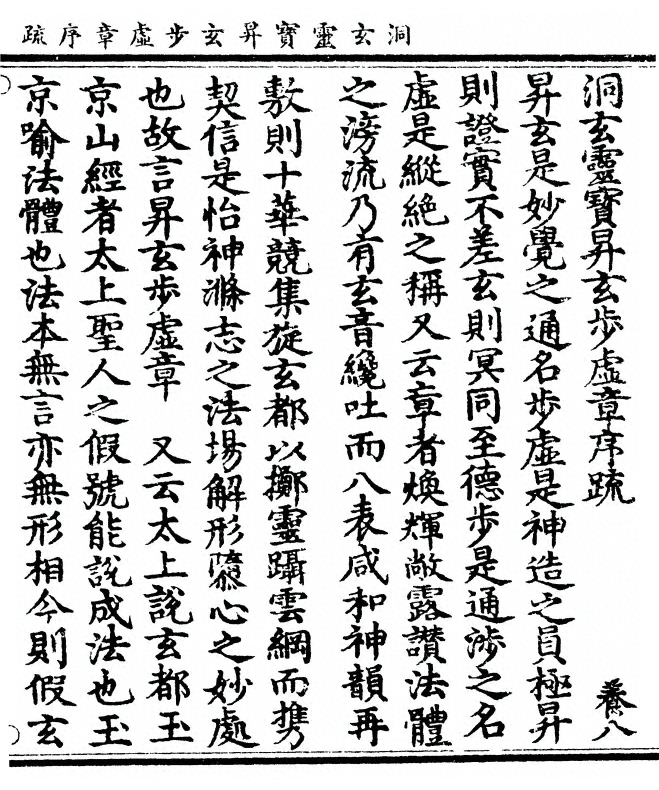 洞玄靈寶昇玄步虛章序疏
洞玄靈寶昇玄步虛章序疏　養八
昇玄是妙覺之通名步虛是神造之員極昇
則證實不差玄則冥同至德步是通涉之名
虛是縱絕之稱又云章者煥輝敞露讚法體
之滂流乃有玄音纔吐而八表咸和神韻再
敷則十華競集旋玄都以擲靈躡雲綱而携
契信是怡神滌志之法場解形隳心之妙處
也故言昇玄步虛章　又云太上說玄都玉
京山經者太上聖人之假號能說成法也玉
京喻法體也法本無言亦無形相今則假玄